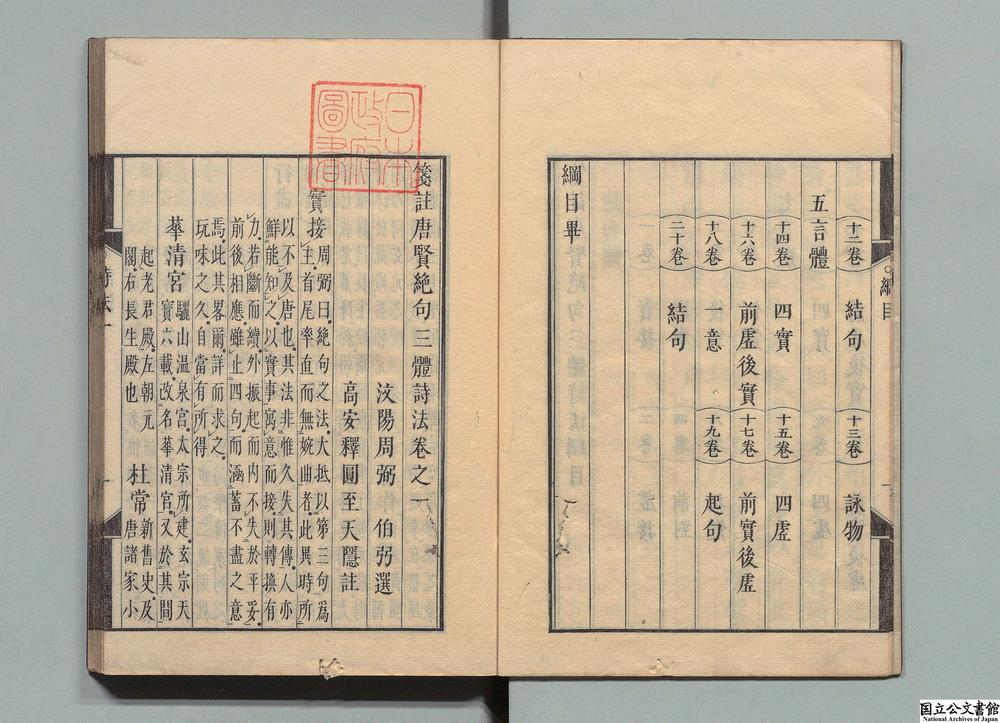 十二卷 結句 十三卷 詠物
五言體
十四卷 四實 十五卷 四虛
十六卷 前虛後實 十七卷 前實後虛
十八卷 後意 十九卷 起句
二十卷 結句
綱目畢
綱目
日本
政府
圖書
箋註唐賢絶句三體詩法卷之一
汶陽周弼 伯弜選
高安釋圓至天隱註
實接
周弼曰絶句之法大抵以第三句爲
主首尾率直而無婉曲者此異時所
以不及唐也其法非惟久失其傳人亦
鮮能知之以實事寓意而接則轉換有
力若斷而續外振起而内不失於平妥
前後相應雖止四句而涵蓄不盡之意
焉此其畧爾詳而求之
玩味之久自當有所得
華清宮
驪山溫泉宮太宗所建玄宗天
寶六載改名華清宮又於其間
起老君殿左朝元
閣右長生殿也
杜常
新舊史及
唐諸家小
詩法一
国立公文書館
National Archives of Japan